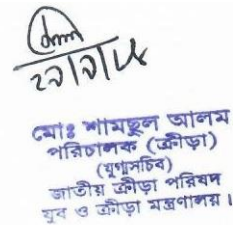 মোঃ শামছুল আলম
পরিচালক (ক্রীড়া)
(যুগ্মসচিব)
জাতীয় ক্রীড়া পরিষদ
যুব ও ক্রীড়া মন্ত্রণালয়।